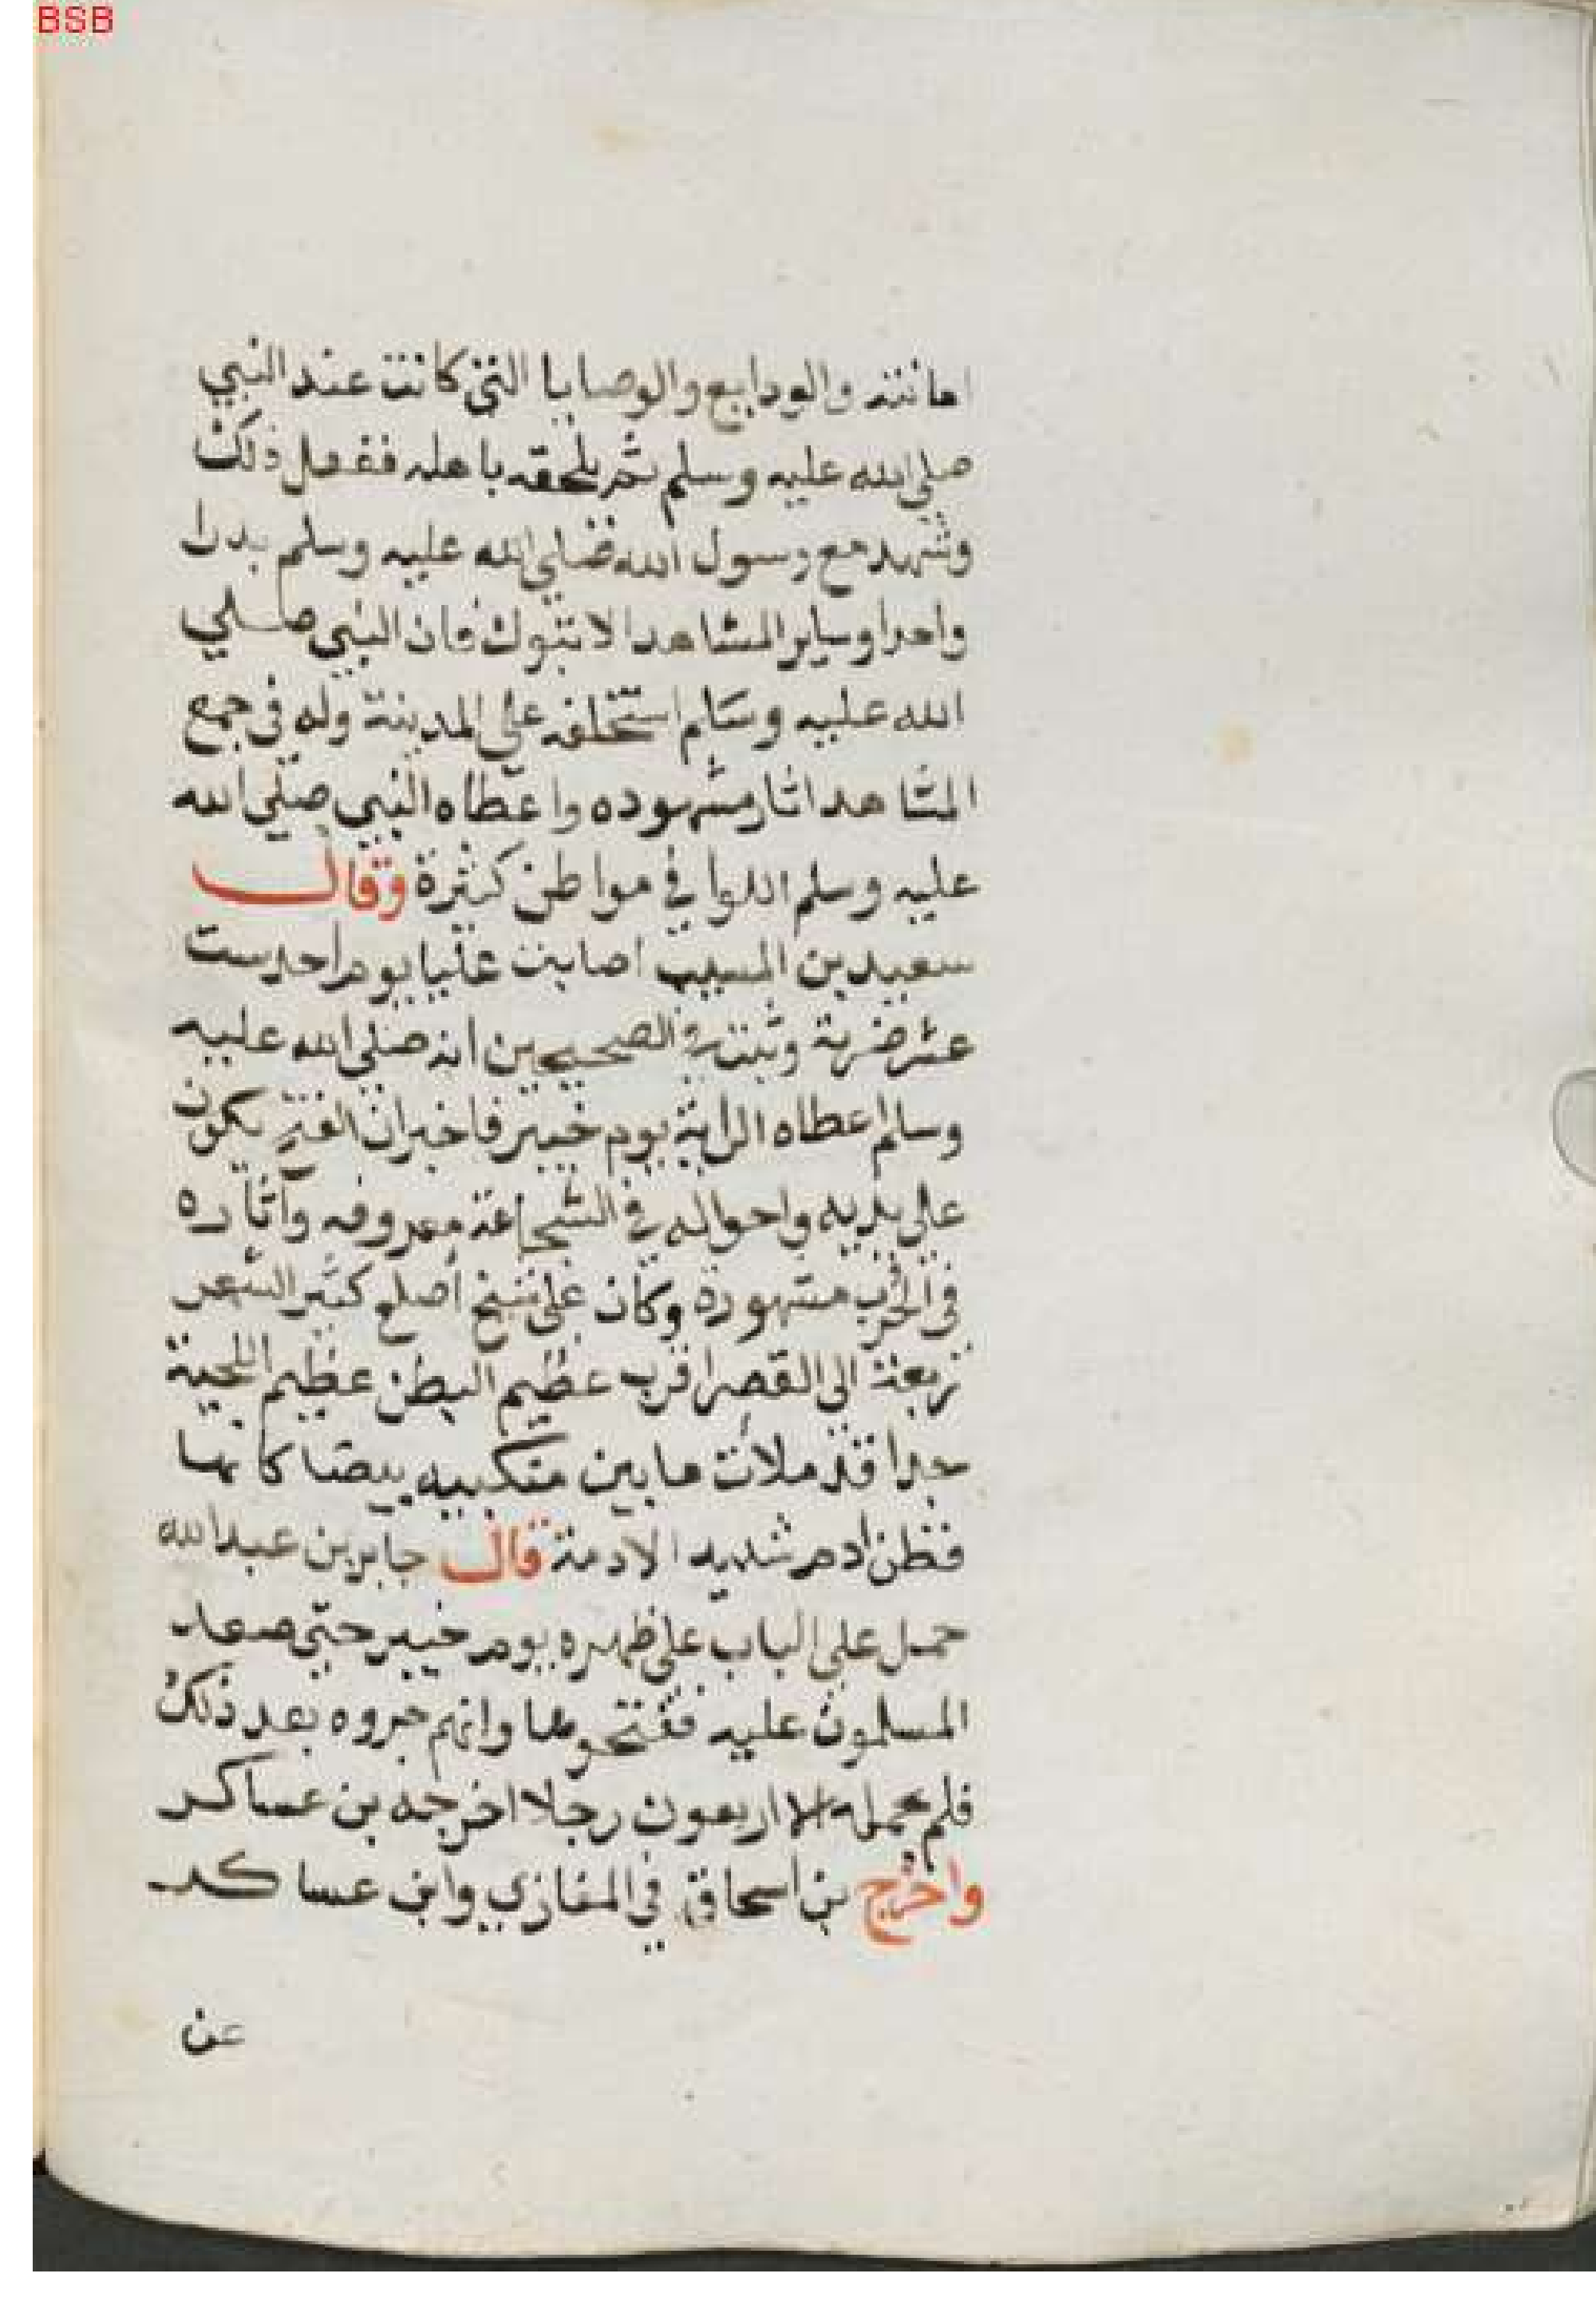 BSB
امانته والودايع والوصايا التي كانت عند النبي
صلى الله عليه وسلم ثم يلحقه باهله ففعل ذلك
وشهد مع رسول الله صلى الله عليه وسلم بدرا
واحدا وساير المشاهد الا تبوك فان النبي صلي
الله عليه وسلم استخلفه على المدينة وله في جمع
المشاهد اثار مشهوده واعطاه النبي صلى الله
عليه وسلم اللوا في مواطن كثيرة وقال
سعيد بن المسيب اصابت عليا يوم احد ست
عشر ضربة وثبت في الصحيحين انه صلى الله عليه
وسلم اعطاه الراية يوم خيبر فاخبر ان الفتح يكون
على يديه واحواله في الشجاعة معروفه وآثاره
في الحرب مشهورة وكان علي شيخ أصلع كثير الشعر
ربعة الى القصر اقرب عظيم البطن عظيم اللحية
جدا قد ملات ما بين منكبيه بيضا كانها
قطن ادم شديه الادمة قال جابر بن عبد الله
حمل علي الباب على ظهره يوم خيبر حتى صعد
المسلمون عليه ففتحوها وانهم جروه بعد ذلك
فلم يحمله الا اربعون رجلا اخرجه بن عساكر
واخرج بن اسحاق في المغازي وابن عساكر
عن